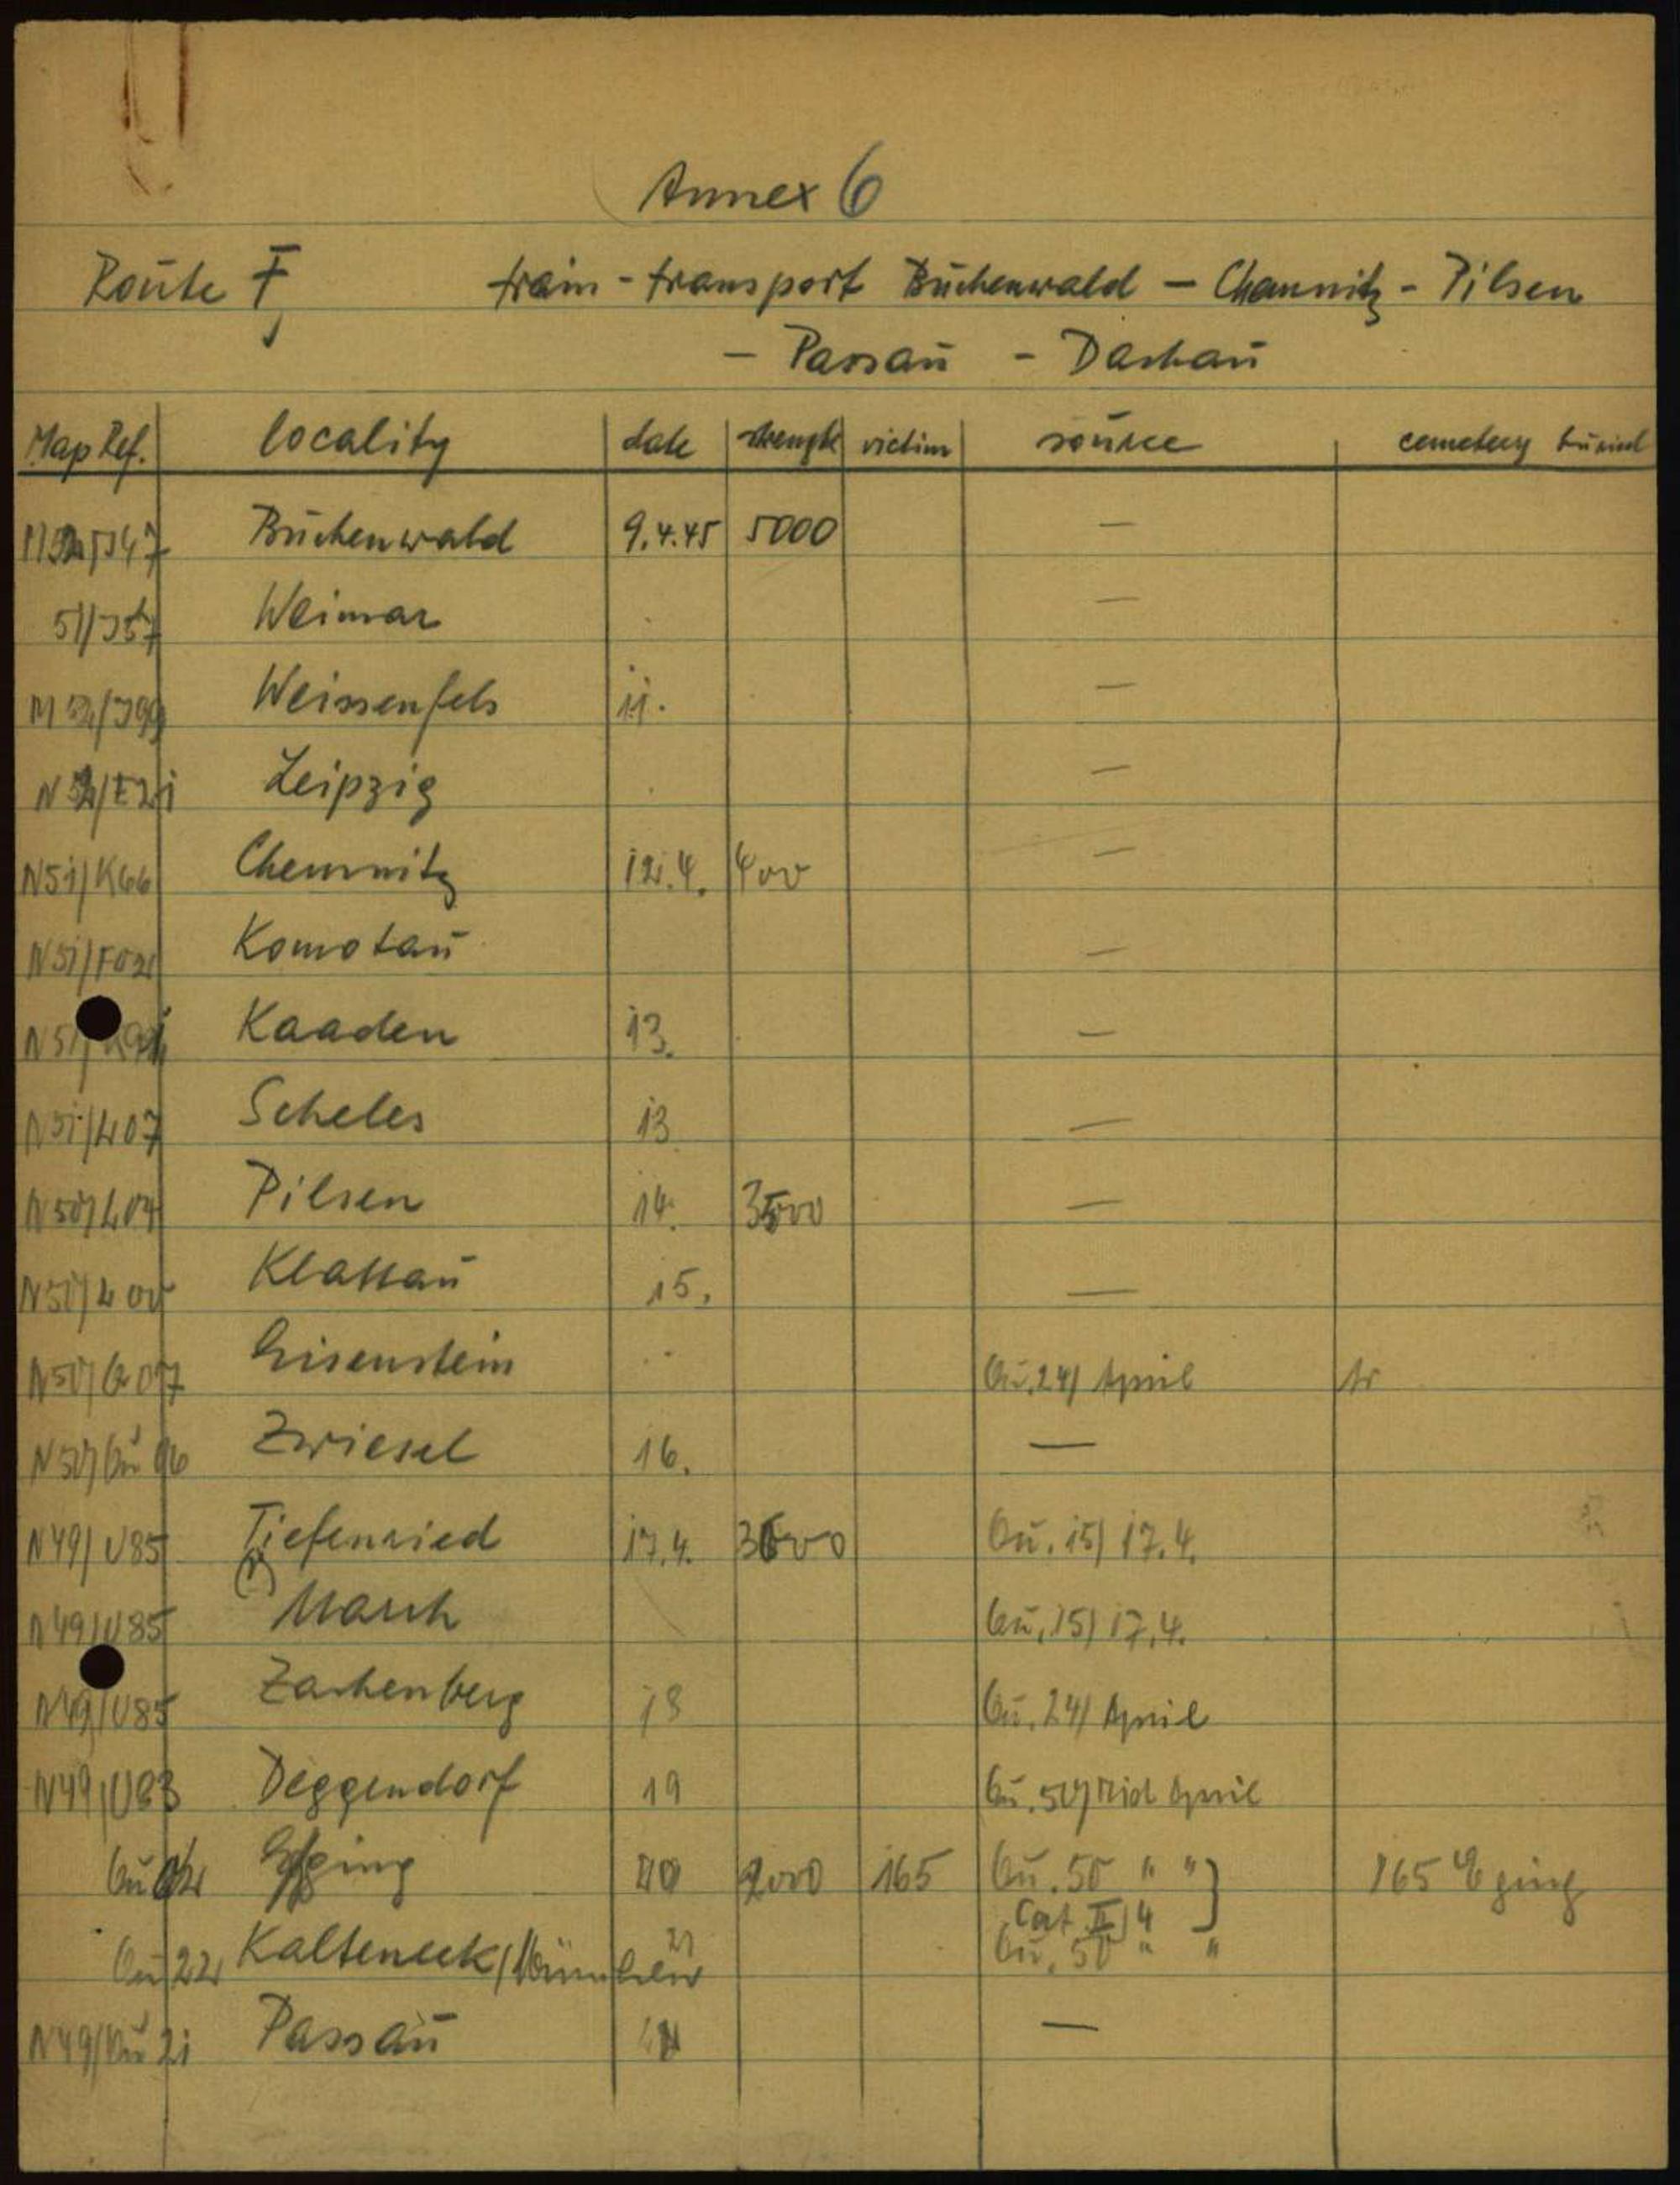 Annex 6
Route F train - transport Buchenwald - Chemnitz - Pilsen
- Passau - Dachau
Map Ref. locality date strength victim source cemetery buried
Buchenwald 9.4.45 5000 —
51/J57 Weimar . —
M 52/J99 Weissenfels 11. —
Leipzig . —
N51/K66 Chemnitz 12.4. 400 —
N51/F02 Komotau —
Kaaden 13. —
N51/L07 Scheles 13 —
N50/L04 Pilsen 14. 3500 —
N50/L00 Klattau 15. —
N50/Q07 Eisenstein Qu. 24/ April
N50/Qu 96 Zwiesel 16. —
N49/U85 Tiefenried 17.4. Qu. 15/ 17.4.
N49/U85 March Qu. 15/ 17.4.
N49/U85 Zachenberg 18 Qu. 24/ April
N49/U83 Deggendorf 19 Qu. 50/ Mid April
Qu Eging 2000 165 Qu. 50 " " 165 Eging
Cat II/4
Qu 22 Kalteneck/ 21 Qu. 50 " "
N49/Qu 21 Passau —